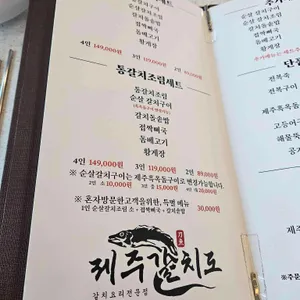 순살갈치구이
갈치돌솥밥
접짝뼈국
돔베고기
황게장
4인 149,000원
3인 119,000원
통갈치조림세트
통갈치조림
순살 갈치구이
갈치돌솥밥
접짝뼈국
돔베고기
황게장
4인 149,000원 3인 119,000원 2인 89,000원
※ 순살갈치구이는 제주흑옥돔구이로 변경가능합니다.
2인 소 10,000원 3인 중 15,000원
※ 혼자방문한고객을위한, 특별 메뉴
1인 순살갈치조림 소 + 접짝뼈국 + 갈치돌솥밥 30,000원
제주갈치도
갈치요리전문점
단품
전복죽
전복구이
고등어
해물뚝
공기